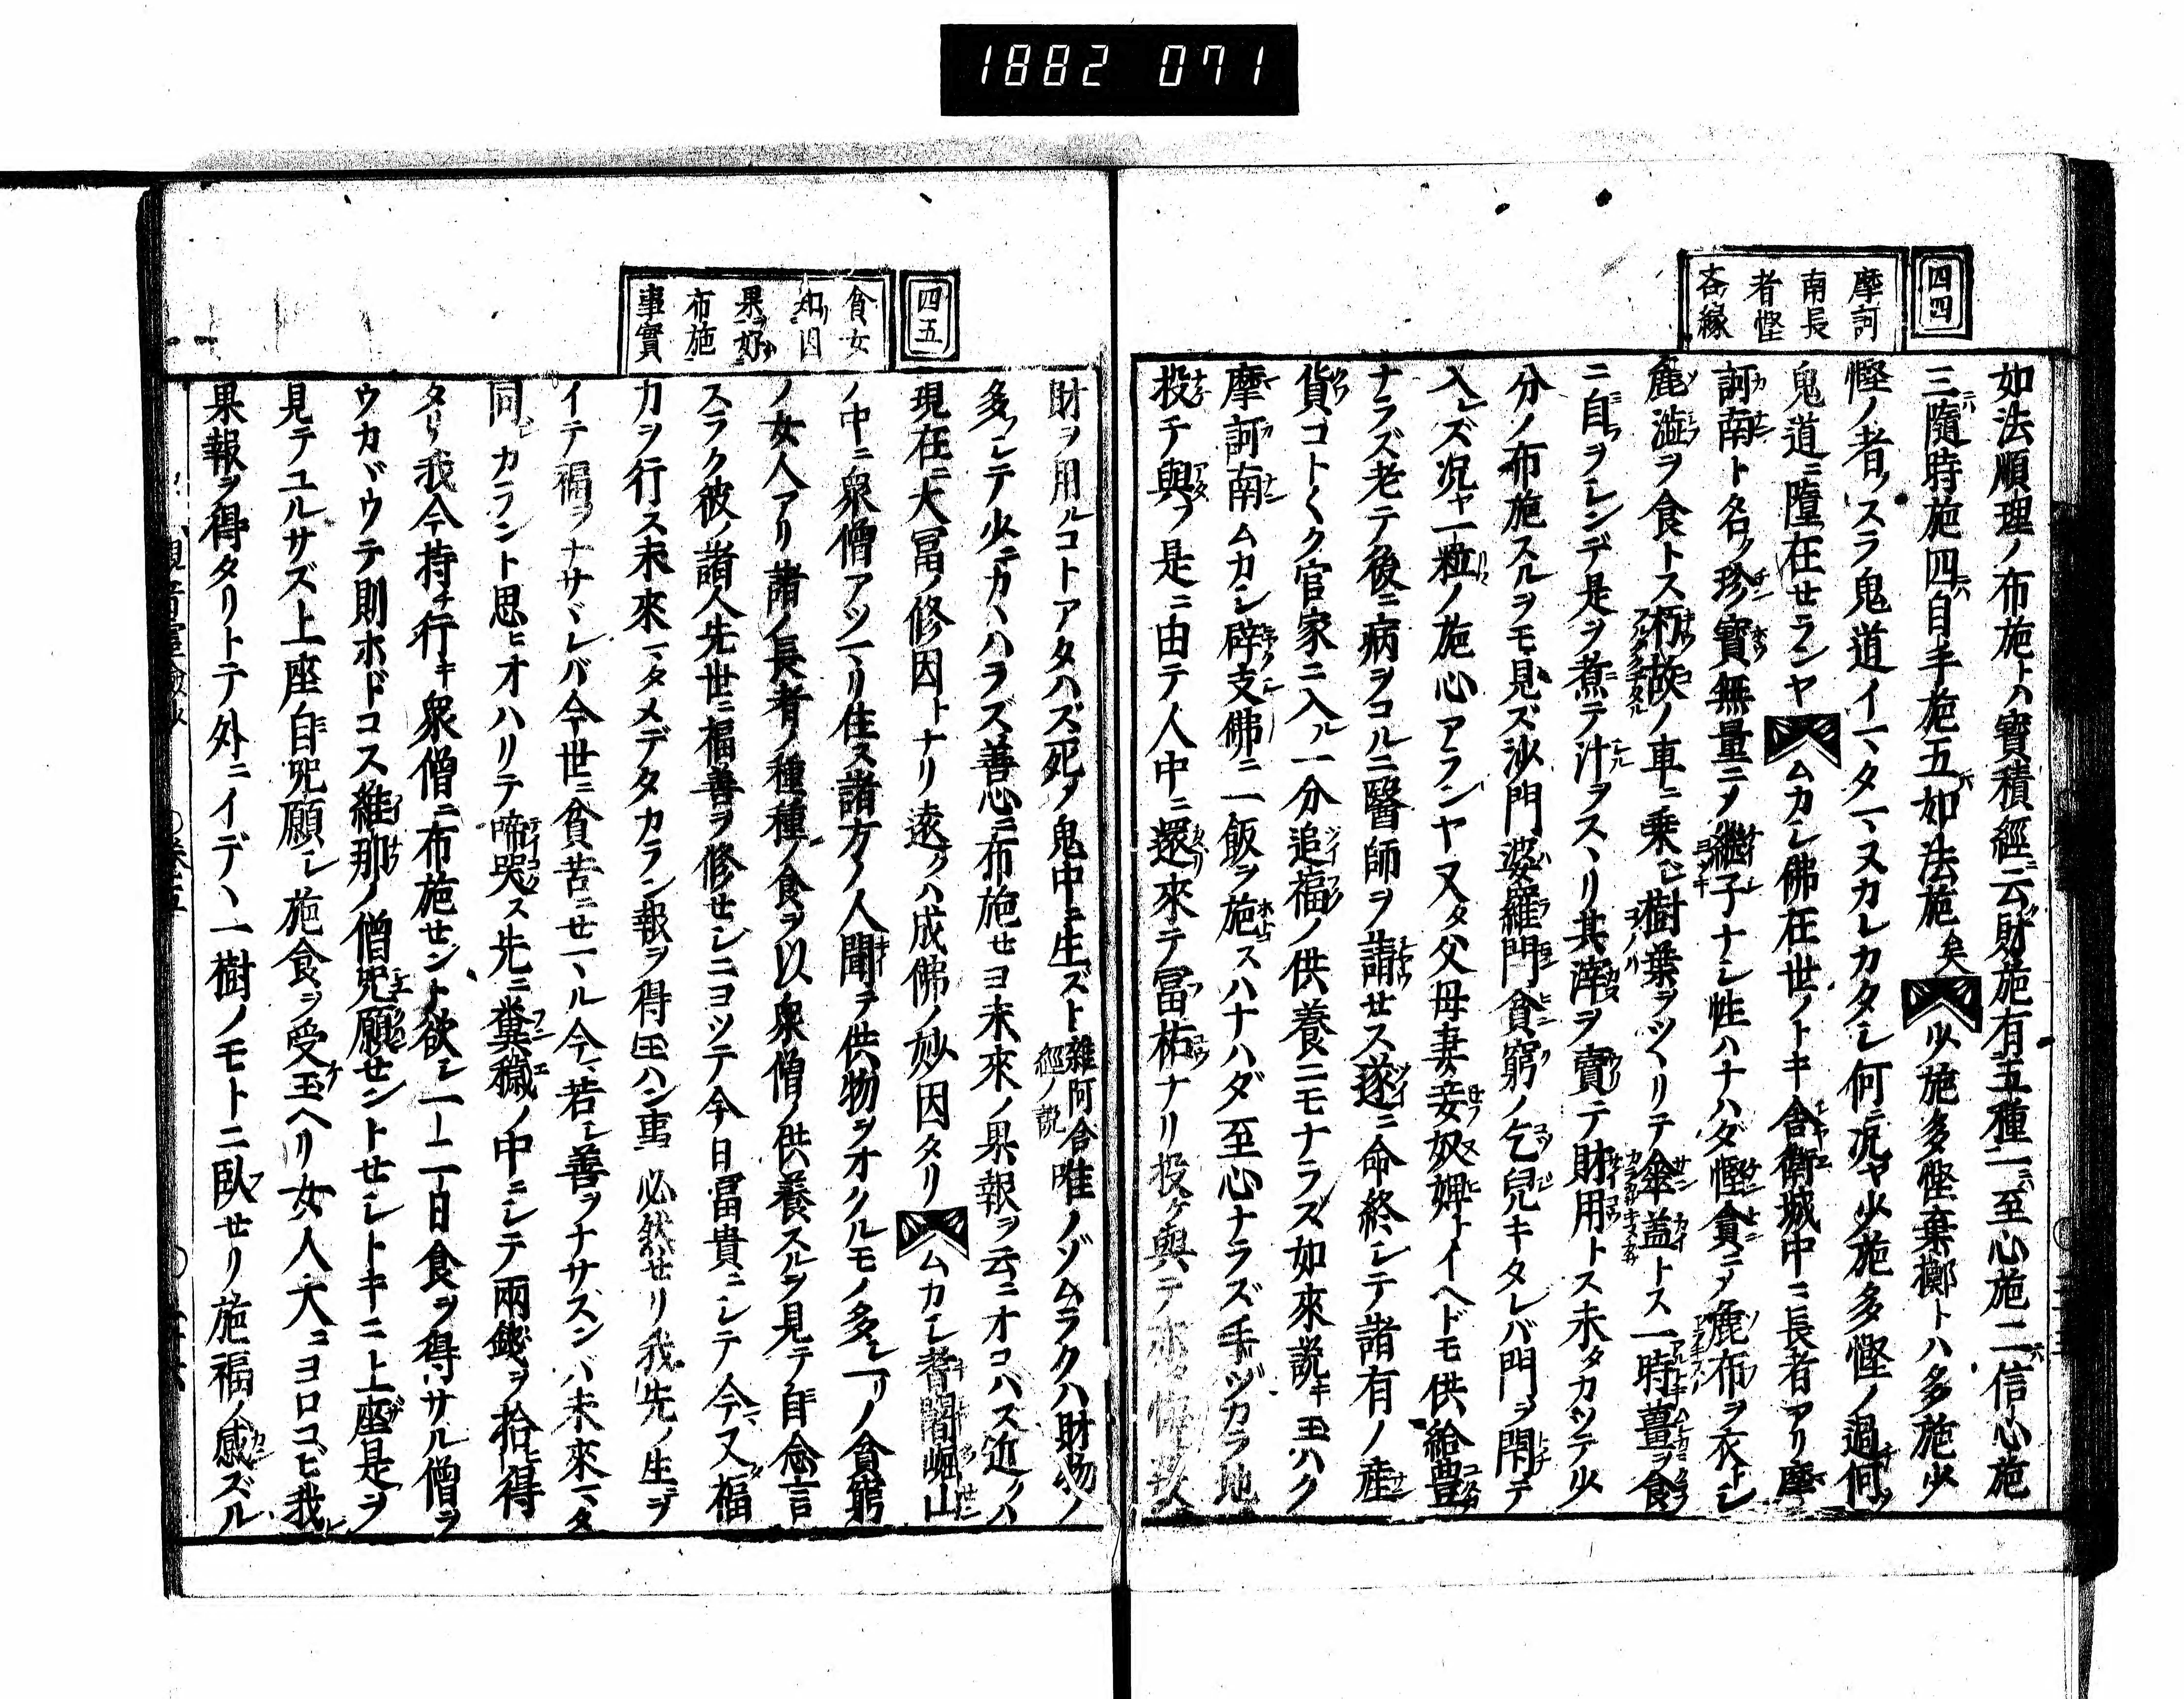 1882 071
四四
摩訶
南長
者慳
吝縁
如法順理ノ布施トハ寳積經ニ云財施有五種一ニハ至心施二ニハ信心施
三ニハ隨時施四ニハ自手施五ニハ如法施矣少施多慳棄擲トハ多施少
慳ノ者ノスラ鬼道イマタマヌカレカタシ何ニ况ヤ少施多慳ノ過何ソ
鬼道ニ墮在セランヤムカシ佛在世ノトキ舎衛城中ニ長者アリ摩
訶南ト名ク珍寳無量ニメ繼子ナシ性ハナハダ慳貪ニメ麁布ヲ衣トシ
麁澁ヲ食トス朽故ノ車ニ乗シ樹葉ヲツヽリテ傘盖トス一時薑ヲ食
ニ自ヲシンデ是ヲ煮テ汁ヲスヽリ其滓ヲ賣テ財用トス未タカツテ少
分ノ布施スルヲモ見ズ沙門婆羅門貪窮ノ乞兒キタレバ門ヲ閇テ
入レズ况ヤ一粒ノ施心アランヤ又タ父母妻妾奴婢トイヘドモ供給豊
ナラズ老テ後ニ病ヲコルニ醫師ヲ請セス遂ニ命終シテ諸有ノ産
貨コト〱ク官家ニ入ル一分追福ノ供養ニモナラズ如來説キ玉ハク
摩訶南ムカシ辟支佛ニ一飯ヲ施スハナハダ至心ナラズ手ヅカラ地
投チ與フ是ニ由テ人中ニ還來テ冨祐ナリ投ケ與テ
四五
貧女
知因
果好
布施
事實
財ヲ用ルコトアタハズ死メ鬼中ニ生ズト雜阿含經ノ説唯ノゾムラクハ財物ノ
多フシテ少ニカヽハラズ善心ニ布施セヨ未來ノ果報ヲ云ニオコハス近クハ
現在ニ大冨ノ修因トナリ遠クハ成佛ノ妙因タリムカシ耆闍崛山
ノ中ニ衆僧アツマリ住ス諸方ノ人聞テ供物ヲオクルモノ多シ一リノ貧窮
ノ女人アリ諸ノ長者ノ種種ノ食ヲ以衆僧ノ供養スルヲ見テ自念言
スラク彼ノ諸人先世ニ福善ヲ修セシニヨツテ今日冨貴ニシテ今又福
力ヲ行ス未來マタメデタカラン報ヲ得玉ハン事必然セリ我先ノ生ヲ
イテ福ヲナサヾレバ今世ニ貧苦ニセマル今若シ善ヲナサスンバ未來マタ
同シカラント思ヒオハリテ啼哭ス先ニ糞穢ノ中ニシテ兩錢ヲ拾ヒ得
タリ我今持チ行キ衆僧ニ布施セント欲シ一ト二日食ヲ得サル僧ヲ
ウカヾウテ則ホドコス維那ノ僧咒願セントセシトキニ上座是ヲ
見テユルサズ上座自咒願シ施食ヲ受玉ヘリ女人大ニヨロコビ我レ
果報ヲ得タリトテ外ニイデヽ一樹ノモトニ臥セリ施福ノ感ズル